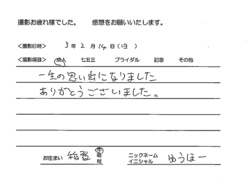 撮影お疲れ様でした。 感想をお願いいたします。
<撮影日時> 3年2月14日(日)
<撮影項目> 成人 七五三 ブライダル 記念 その他
一生の思い出になりました
ありがとうございました。
お住まい 稲敷 市 ニックネーム イニシャル ゆうほー